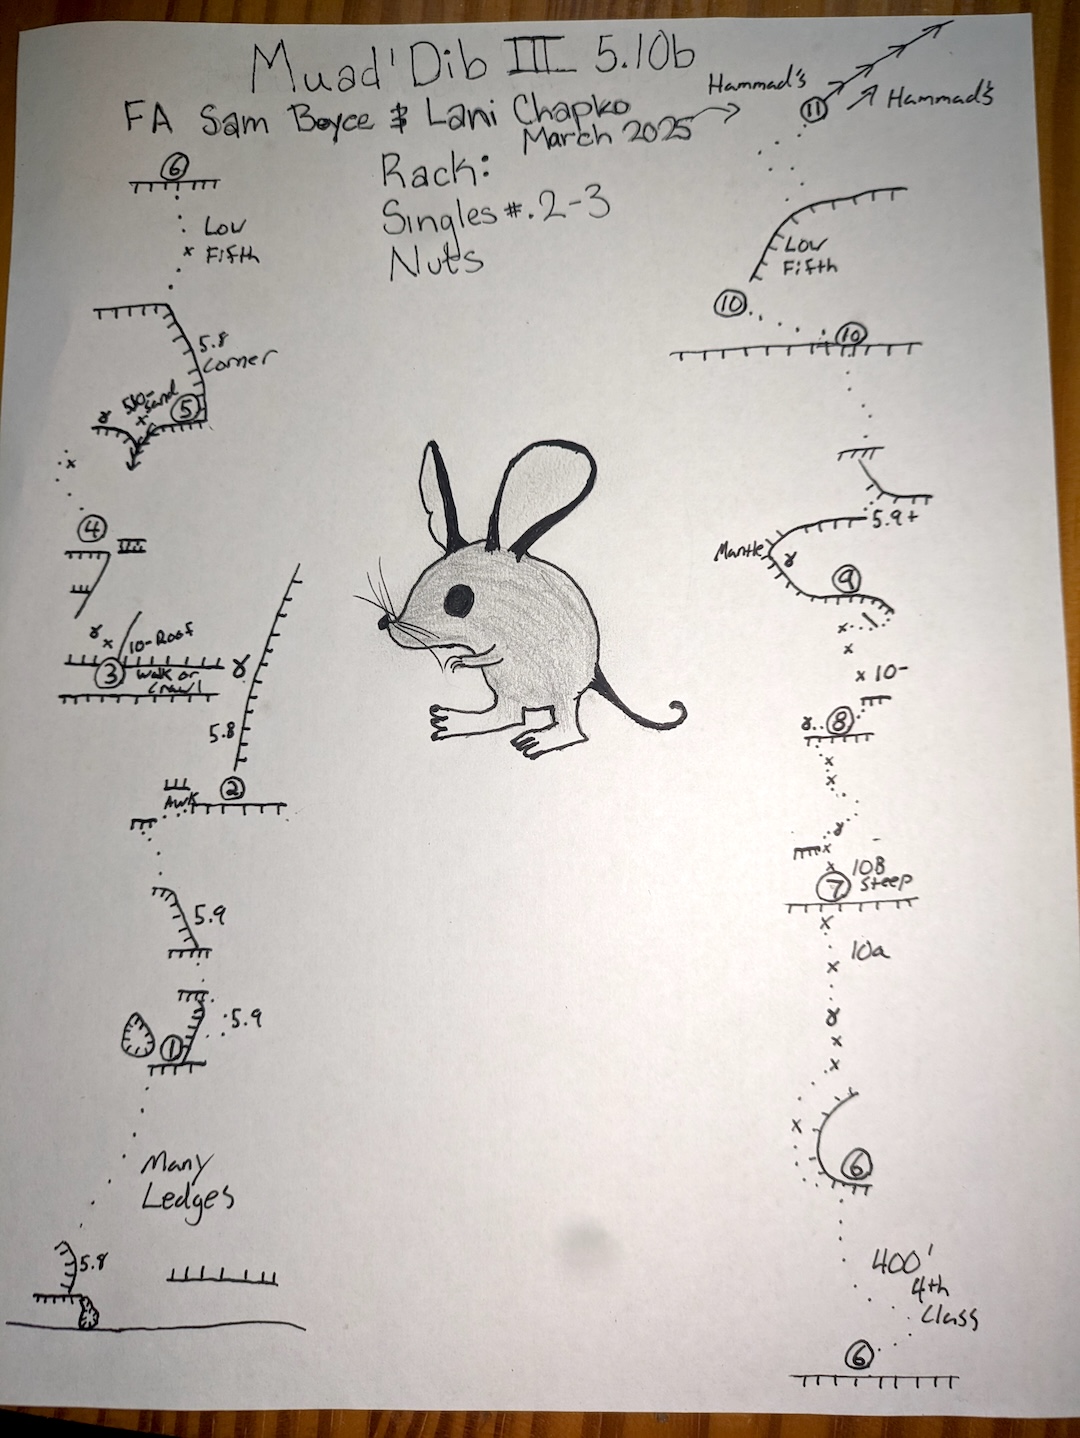 Muad'Dib III 5.10b
FA Sam Boyce & Lani Chapko
March 2025
Rack:
Singles #.2-3
Nuts
6
Low
Fifth
5.8
Corner
5.10-
Sand
5
4
10- Roof
3
Walk or
Crawl
5.8
2
AWK
5.9
5.9
1
Many
Ledges
5.8
Hammad's
11
Hammad's
Low
Fifth
10
10
5.9+
Mantle
9
10-
8
10B
Steep
7
10a
6
400'
4th
Class
6